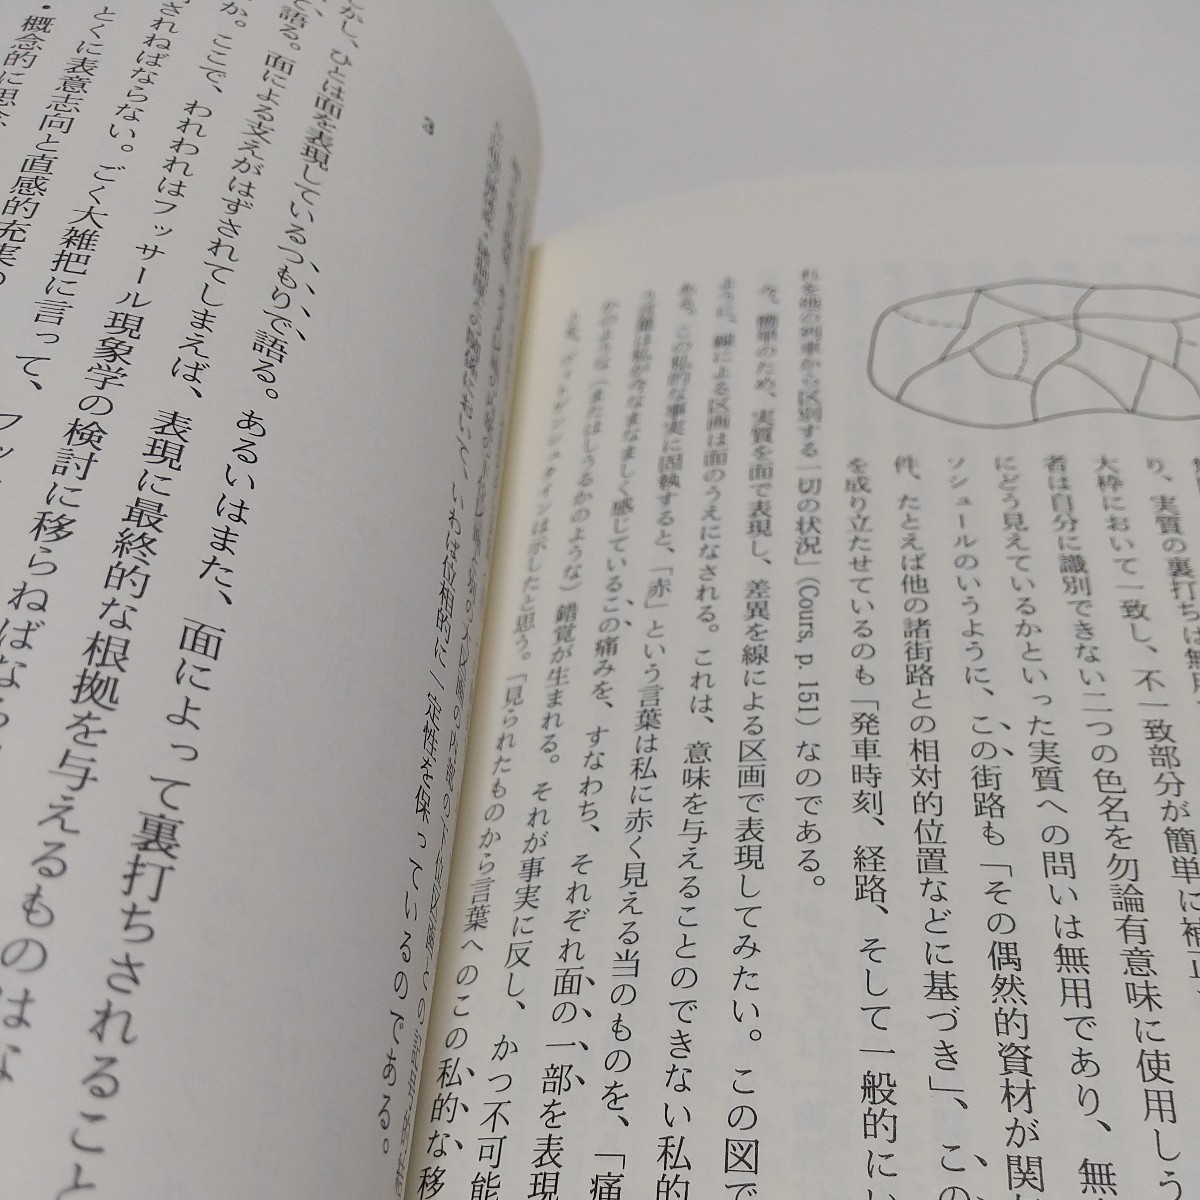 り、実質の裏打ちは無用
大枠において一致し、不一致部分が簡単に補正
者は自分に識別できない二つの色名を勿論有意味に使用しう
にどう見えているかといった実質への問いは無用であり、無
ソシュールのいうように、この街路も「その偶然的資材が関
件、たとえば他の諸街路との相対的位置などに基づき」、この
を成り立たせているのも「発車時刻、経路、そして一般的に
れを他の列車から区別する一切の状況」(Cours, p. 151) なのである。
今、簡単のため、実質を面で表現し、差異を線による区画で表現してみたい。この図で
ように、線による区画は面のうえになされる。これは、意味を与えることのできない私的
ある。この私的な事実に固執すると、「赤」という言葉は私に赤く見える当のものを、「痛
う言葉は私が今なまなましく感じているこの痛みを、すなわち、それぞれ面の一部を表現
かのような(またはしうるかのような)錯覚が生まれる。それが事実に反し、かつ不可能
とを、ヴィトゲンシュタインは示したと思う。「見られたものから言葉へのこの私的な移
いわば位相的に一定性を保っているのである。
3
しかし、ひとは面を表現しているつもりで語る。あるいはまた、面によって裏打ちされること
で語る。面による支えがはずされてしまえば、表現に最終的な根拠を与えるものはな
か。ここで、われわれはフッサール現象学の検討に移らねばなら
されねばならない。ごく大雑把に言って、
とくに表意志向と直感的充実
・概念的に思念